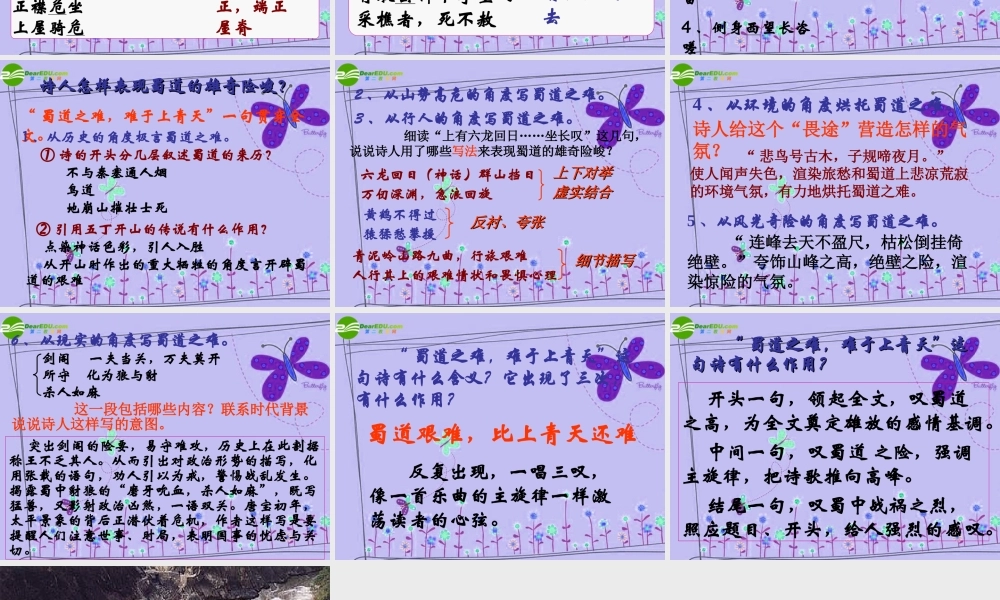 正襟危坐
正，端正
上屋骑危
屋脊
采樵者，死不赦
去
4 、侧身西望长咨
嗟
DearEDU.com
诗人怎样表现蜀道的雄奇险峻？
“ 蜀道之难，难于上青天”一句贯穿全
文。
1、从历史的角度极言蜀道之难。
① 诗的开头分几层叙述蜀道的来历？
不与秦塞通人烟
鸟道
地崩山摧壮士死
② 引用五丁开山的传说有什么作用？
点染神话色彩，引人入胜
从开山时作出的重大牺牲的角度言开辟蜀
道的艰难
Butterfly
DearEDU.com
2 、从山势高危的角度写蜀道之难。
3 、从行人的角度写蜀道之难。
细读“上有六龙回日……坐长叹”这几句，
说说诗人用了哪些写法来表现蜀道的雄奇险峻？
六龙回日（神话）群山挡日
万仞深渊，急浪回旋
上下对举
虚实结合
黄鹤不得过
猿猱愁攀援
反衬、夸张
青泥岭山路九曲，行旅艰难
人行其上的艰难情状和畏惧心理
细节描写
Butterfly
DearEDU.com
4 、从环境的角度烘托蜀道之难。
诗人给这个“畏途”营造怎样的气
氛？
“ 悲鸟号古木，子规啼夜月。”
使人闻声失色，渲染旅愁和蜀道上悲凉荒寂
的环境气氛，有力地烘托蜀道之难。
5 、从风光奇险的角度写蜀道之难。
“ 连峰去天不盈尺，枯松倒挂倚
绝壁。”夸饰山峰之高，绝壁之险，渲
染惊险的气氛。
Butterfly
DearEDU.com
6 、从现实的角度写蜀道之难。
剑阁 一夫当关，万夫莫开
所守 化为狼与豺
杀人如麻
这一段包括哪些内容？联系时代背景
说说诗人这样写的意图。
突出剑阁的险要，易守难攻，历史上在此割据
称王不乏其人。从而引出对政治形势的描写，化
用张载的语句，劝人引以为戒，警惕战乱发生。
揭露蜀中豺狼的“磨牙吮血，杀人如麻”，既写
猛兽，又影射政治凶煞，一语双关。唐宝初年，
太平景象的背后正潜伏着危机，作者这样写是要
提醒人们注意世事、时局，表明国事的忧虑与关
切。
Butterfly
DearEDU.com
“ 蜀道之难，难于上青天”这
句诗有什么含义？它出现了三次
有什么作用？
蜀道艰难，比上青天还难
反复出现，一唱三叹，
像一首乐曲的主旋律一样激
荡读者的心弦。
Butterfly
DearEDU.com
“ 蜀道之难，难于上青天”这
句诗有什么作用？
开头一句，领起全文，叹蜀道
之高，为全文奠定雄放的感情基调。
中间一句，叹蜀道 之险，强调
主旋律，把诗歌推向高峰。
结尾一句，叹蜀中战祸之烈，
照应题目、开头，给人强烈的感叹。
Butterfly